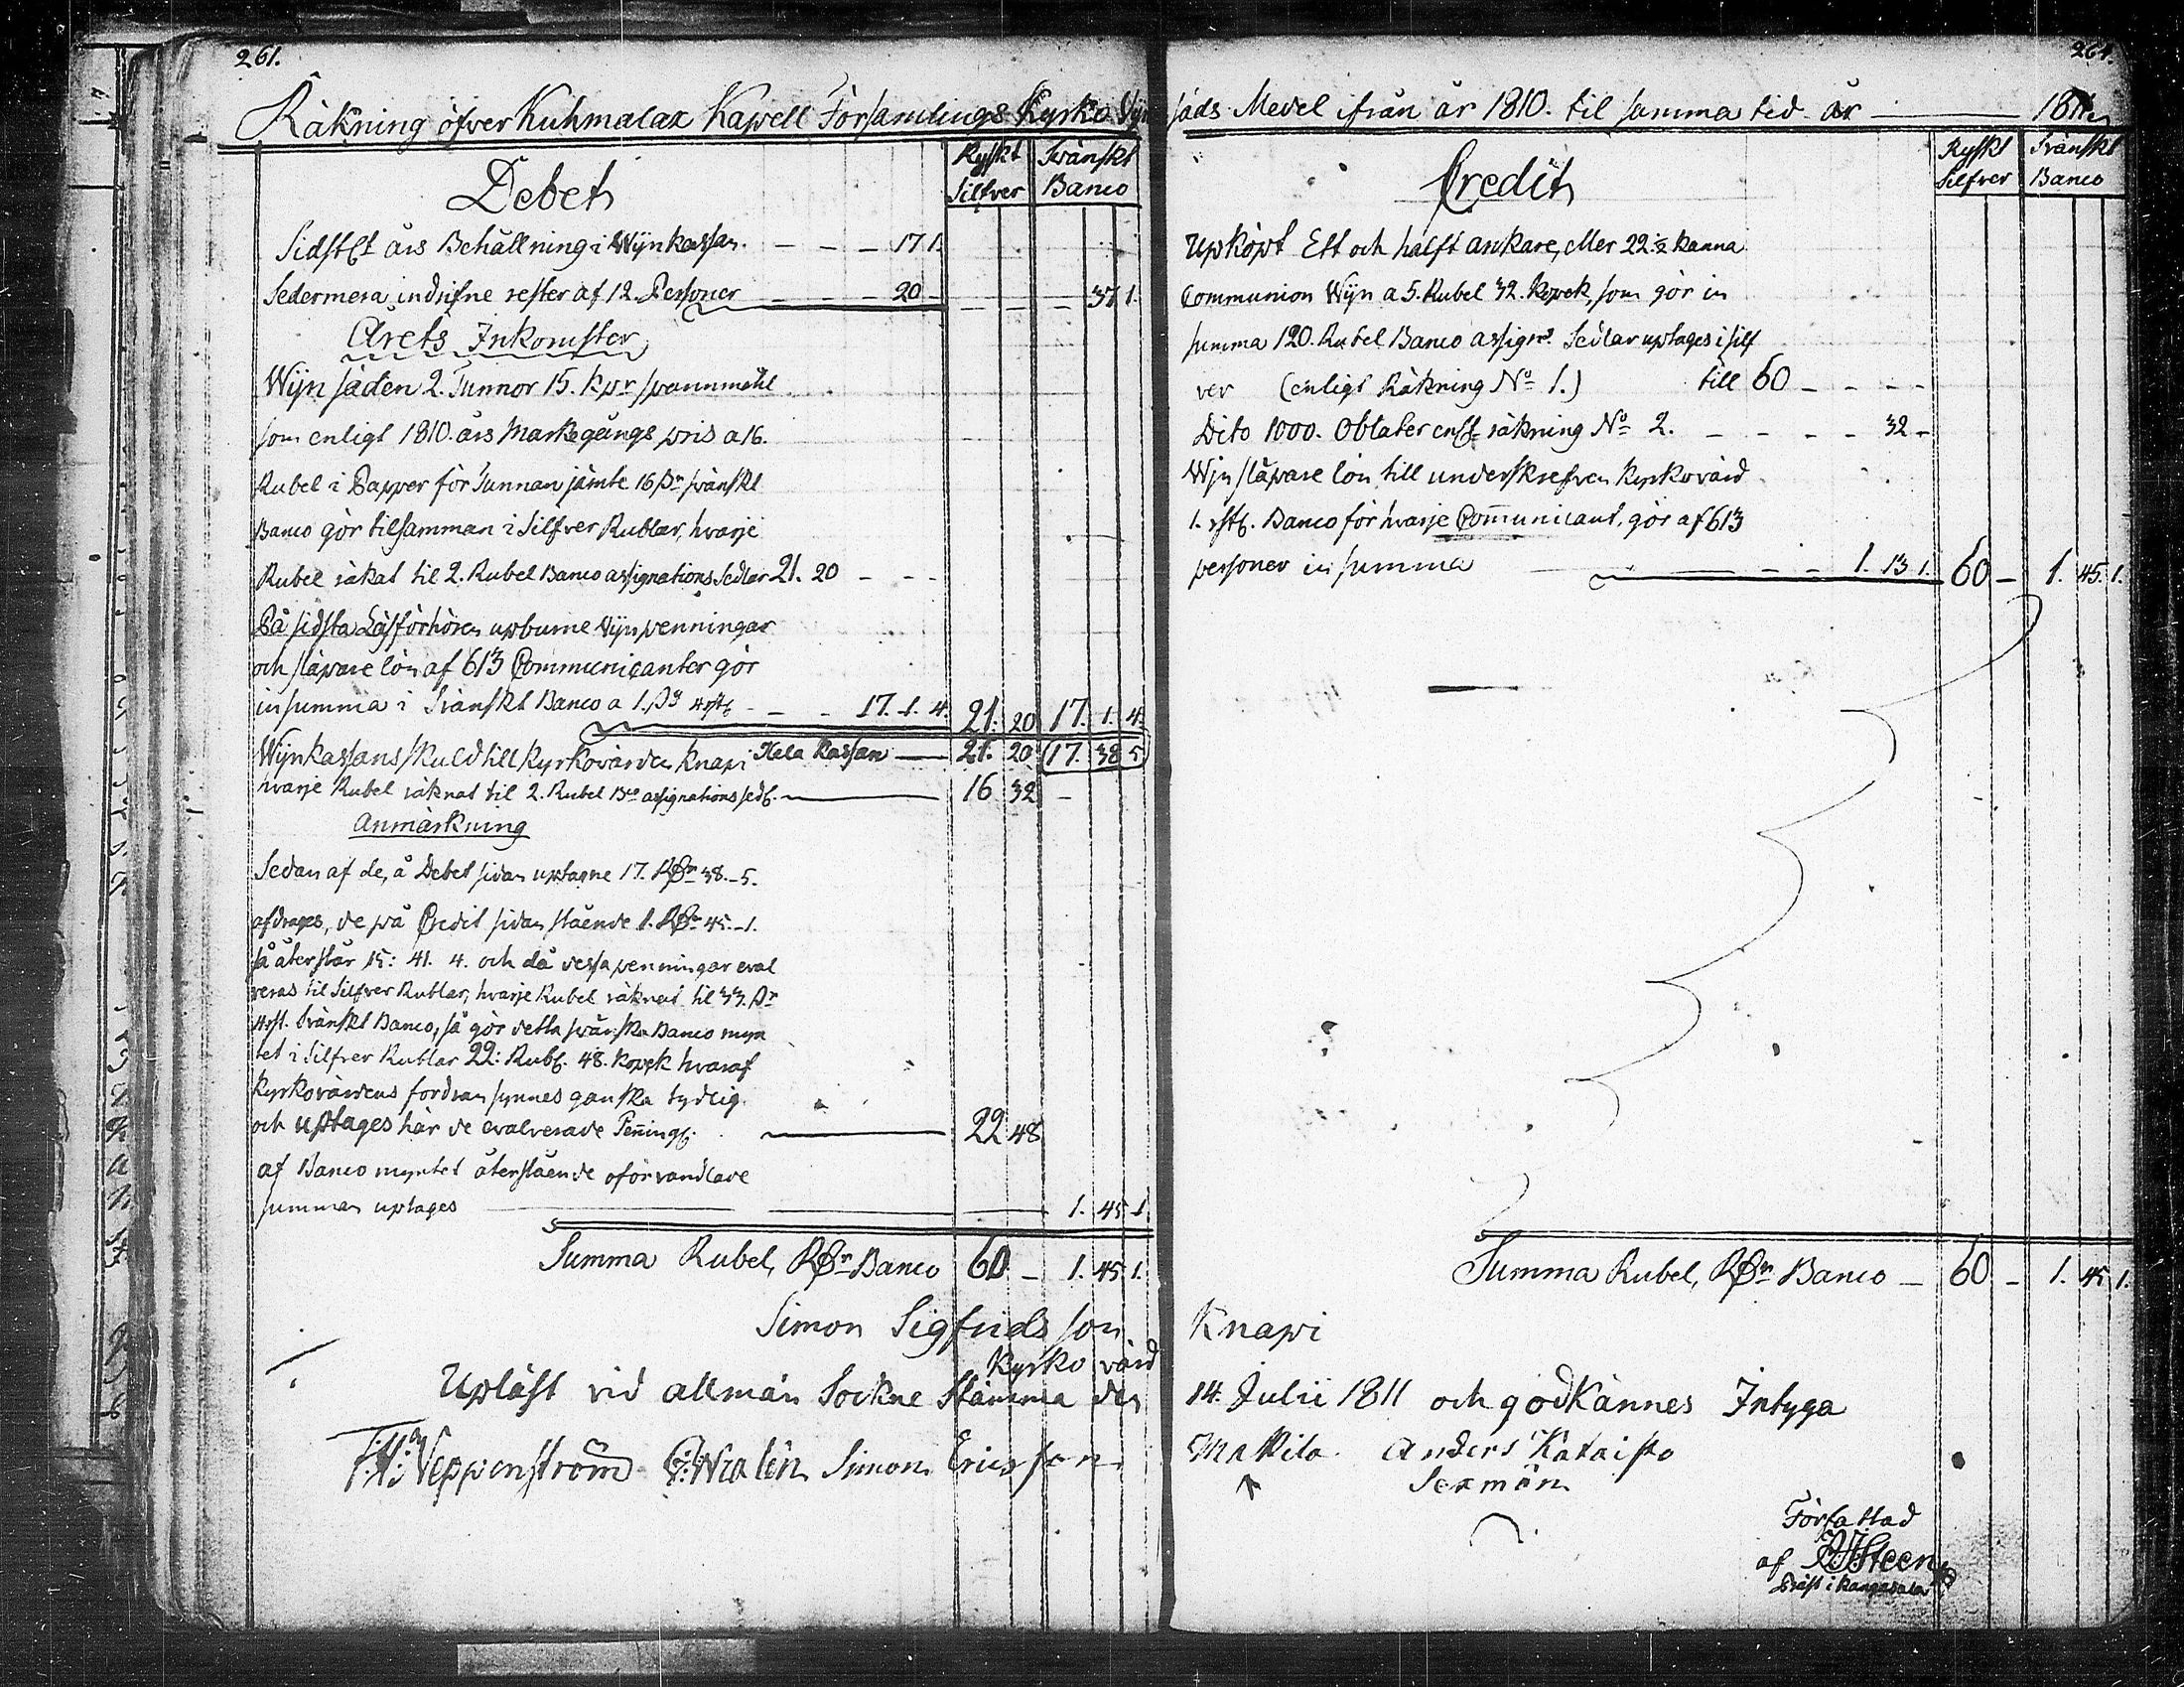 261.
Räkning öfver Kuhmalax Kapell Församlings Kyrko Wijn
Debet
Ryskt Silfver
Svänskt Banco
Sidstl:t års Behållning i Wijnkassan. — — — 17 1.
Sedermera indrifne rester af 12. Personer — — — 20 — — — — 37 1.
Årets Inkomster
Wijn säden 2. Tunnor 15. kpr spannmåhl
som enligt 1810. års Markegångs pris a 16.
Rubel i Papper för Tunnan jämte 16 s:r svänskt
Banco gör tilsamman i Silfver Rublar, hvarje
Rubel räknat til 2. Rubel Banco assignations Sedlar 21. 20 — — —
På sidsta Läsförhören upburne Vijnpenningar
och släpare lön af 613 Communicanter gör
in summa i Svänskt Banco a 1. s:r 4 rst. — — — 17. 1. 4. 21. 20 17. 1. 4.
Hela Kassan — 21. 20 17. 38 5
Wijnkassans skuld till Kyrkovärden Knapi
hvarje Rubel räknat til 2. Rubel B:co assignations sedl. — 16 32 —
Anmärkning
Sedan af de, å Debet sidan uptagne 17. RD:r 38. – 5.
afdrages, de på Credit sidan stående 1. RD:r 45. – 1.
så återstår 15: 41. 4. och då dessa penningar eval
veras til Silfver Rublar, hvarje Rubel räknat til 33. s:r
4 rst. Svänskt Banco, så gör detta svänska Banco myn
tet i Silfver Rublar 22: Rubl. 48. kopek hvaraf
Kyrkovärdens fordran synnes ganska tydlig.
och uptages här de evalverade Penning. — 22 48
af Banco myntet återstående oförvandlade
summan uptages — 1. 45 1
Summa Rubel, RD:r Banco 60 — 1. 45 1.
Simon Sigfridsson
Kyrko värd
Upläst vid allmän Sockne Stämma den
Veppenström Simon Ericsson
264.
säds Medel ifrån år 1810. til samma tid år — 1811
Credit
Ryskt Silfver
Svänskt Banco
Upköpt Ett och halft ankare, eller 22 ½ kanna
Communion Wijn a 5. Rubel 32. Kopek, som gör in
summa 120. Rubel Banco assign:s Sedlar uptages i silf
ver (enligt Räkning N:o 1.) till 60 — — — —
Dito 1000. Oblater enl. räkning N:o 2. — — — — 32 —
Wijn släpare lön till underskrefven Kyrkovärd
1. rst. Banco för hvarje Com̄unicant, gör af 613
personer in summa — — 1. 13 1. 60 — 1. 45. 1.
Summa Rubel, RD:r Banco — 60 — 1. 45 1.
Knapi
14. Julii 1811 och godkännes Intyga
Mattila Anders Kataisto
Sexmän
Författad
af Steen
Präst i Kangasala